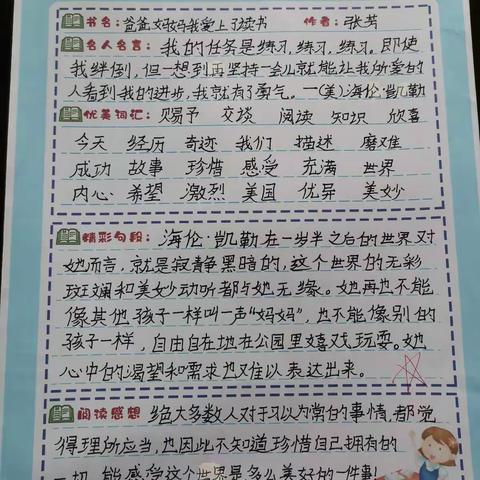 书名：爸爸妈妈我爱上了读书 作者：张芳
名人名言：我的任务是练习，练习，练习。即使
我绊倒，但一想到再坚持一会儿就能让我所爱的
人看到我的进步，我就有了勇气。一(美)海伦·凯勒
优美词汇：赐予 交谈 阅读 知识 欣喜
今天 经历 奇迹 我们 描述 磨难
成功 故事 珍惜 感受 充满 世界
内心 希望 激烈 美国 优异 美妙
精彩句段：海伦·凯勒在一岁半之后的世界对
她而言，就是寂静黑暗的，这个世界的无彩
斑斓和美妙动听都与她无缘。她再也不能
像其他孩子一样叫一声“妈妈”，也不能像别的
孩子一样，自由自在地在公园里嬉戏玩耍。她
心中的渴望和需求也难以表达出来。
阅读感想 绝大多数人对于习以为常的事情，都觉
得理所应当，也因此不知道珍惜自己拥有的
一切，能感受这个世界是多么美好的一件事！